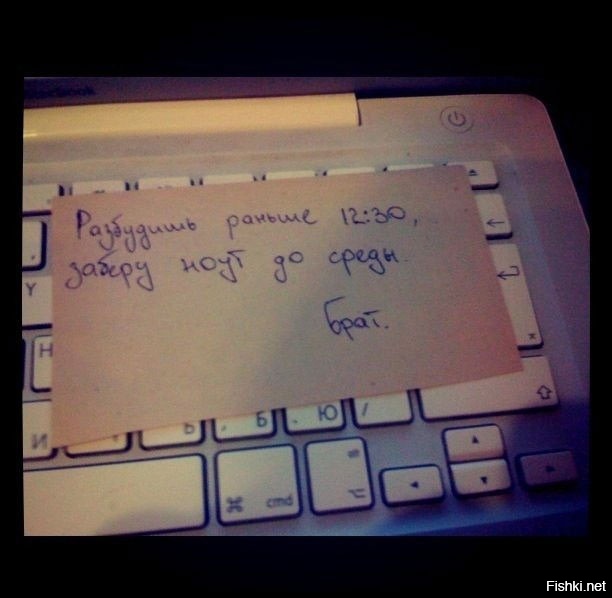 Разбудишь раньше 12:30,
заберу ноут до среды.
Брат.
Y
H
И
Ь
, Б
. Ю
/
cmd
Fishki.net